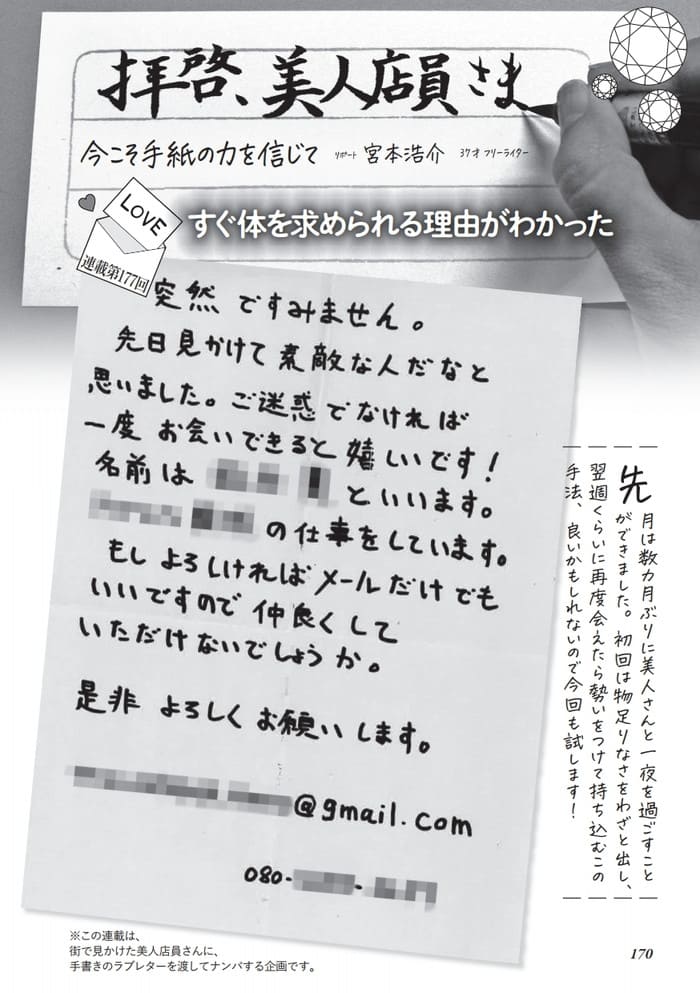 拝啓、美人店員さま
今こそ手紙の力を信じて リポート 宮本浩介 37才 フリーライター
LOVE
連載第177回
すぐ体を求められる理由がわかった
突然ですみません。
先日見かけて素敵な人だなと
思いました。ご迷惑でなければ
一度お会いできると嬉しいです!
名前は といいます。
の仕事をしています。
もしよろしければメールだけでも
いいですので仲良くして
いただけないでしょうか。
是非よろしくお願いします。
@gmail.com
080- -
先月は数カ月ぶりに美人さんと一夜を過ごすこと
ができました。初回は物足りなさをわざと出し、
翌週くらいに再度会えたら勢いをつけて持ち込むこの
手法、良いかもしれないので今回も試します!
※この連載は、
街で見かけた美人店員さんに、
手書きのラブレターを渡してナンパする企画です。
170